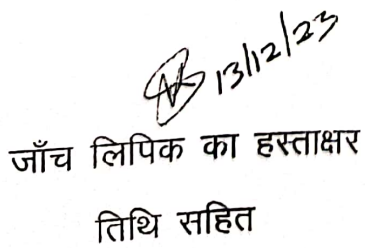 13/12/23
जाँच लिपिक का हस्ताक्षर
तिथि सहित